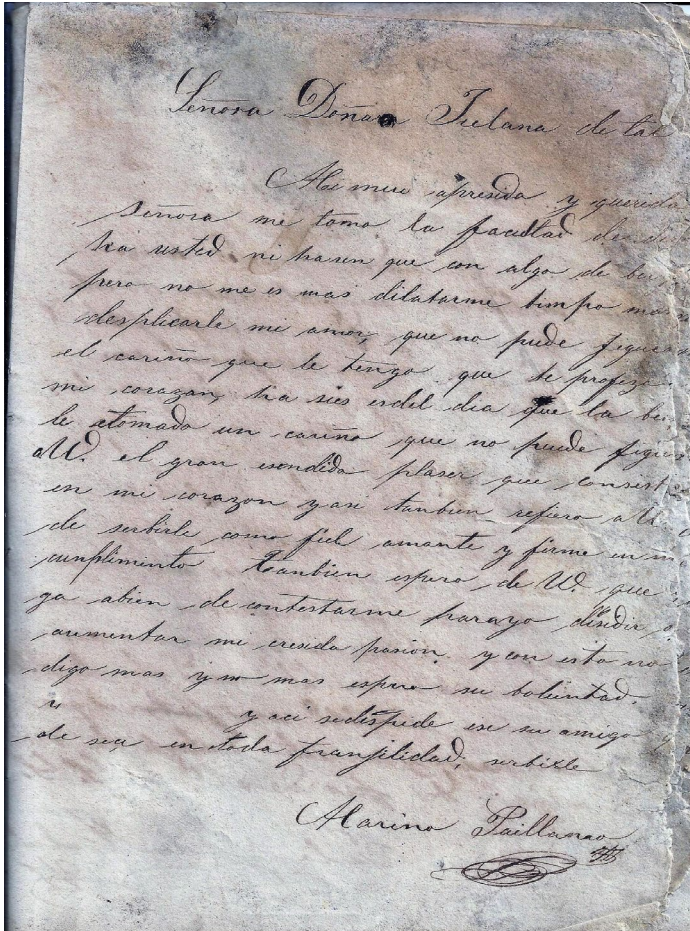 Señora Doña Fulana de tal
Mi mui apresida y querida
Señora me tomo la facultad de
ha usted ni hasen que con algo de
pero no me es mas dilatarme timpo mas
desplicarle mi amor, que no puede figurar
el cariño que le tengo que te profeza
mi corazon, ha sies esdel dia que la
le etomado un cariño que no puede figu
a U. el gran esondido plaser que consert
en mi corazon y asi tanbien refiero a U.
de serbirle como fiel amante y firme en mi
cunplimento tanbien espero de U. que
ga abien de contestarme parayo desidir
aumentar mi cresida pasion y con esto no
digo mas y no mas espero su boluntad.
y aci sedespide ese su amigo
de sea en toda franjilidad, serbirle
Marino Paillanao